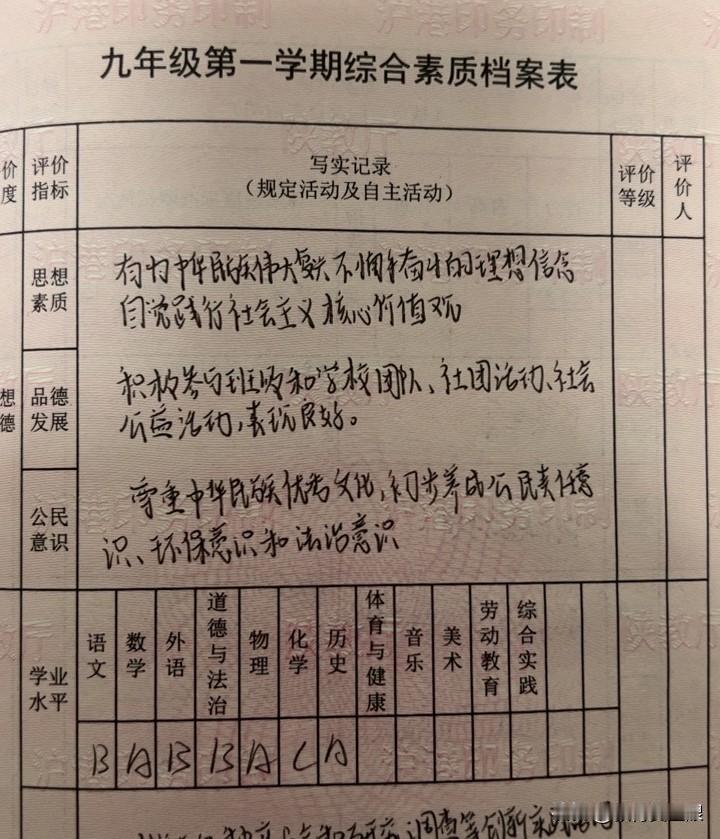 九年级第一学期综合素质档案表
价度
评价指标
写实记录
（规定活动及自主活动）
评价等级
评价人
思想素质
有为中华民族伟大复兴不懈奋斗的理想信念
自觉践行社会主义核心价值观
想德
品德发展
积极参与班级和学校团队、社团活动、社会
公益活动，表现良好。
公民意识
尊重中华民族优秀文化，初步养成公民责任意
识、环保意识和法治意识
学业水平
语文 数学 外语 道德与法治 物理 化学 历史 体育与健康 音乐 美术 劳动教育 综合实践
B A B B A C A
沪港印务印制
陕教厅